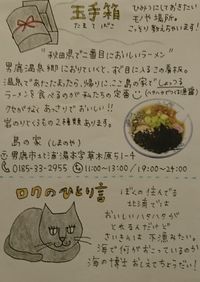 玉手箱
たまてばこ
ひみつにしておきたい
モノや場所。
こっそり教えちゃいます!
"秋田県で二番目においしいラーメン"
男鹿温泉郷におりていくと、まず目に入るこの看板。
温泉であたたまったら、帰りに、ここ島の家でしょっつる
ラーメンを食べるのが私たちの定番
(ハタハタでつくる魚醤)
クセがなくあっさりでおいしい!!
岩のりとくるもの2種類あります。
島の家 (しまのや)
男鹿市北浦湯本字草木原51-4
0185-33-2955 11:00~13:00/19:00~24:00
ロクのひとり言
ぼくの住んでる
北浦では
おいしいハタハタが
とれるんだけど
さいきんは不漁みたい。
海で何がおこっているのか
海の博士おしえてちょうだい!